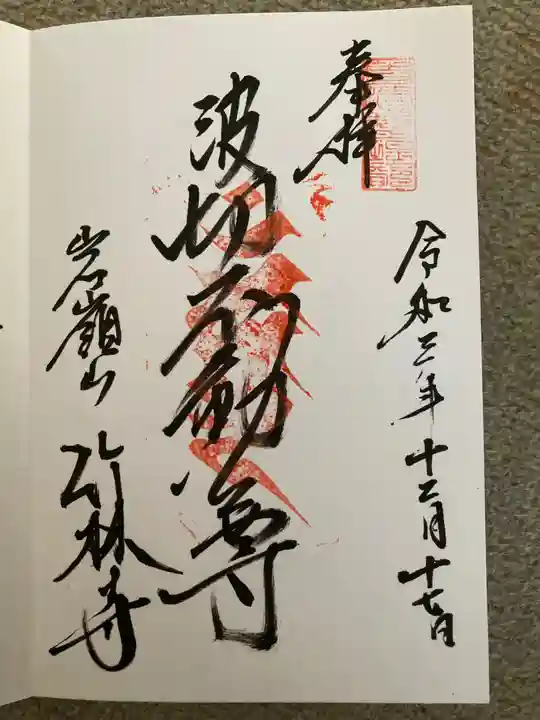 奉拝
令和三年十二月十七日
波切不動尊
岩嶺山 竹林寺